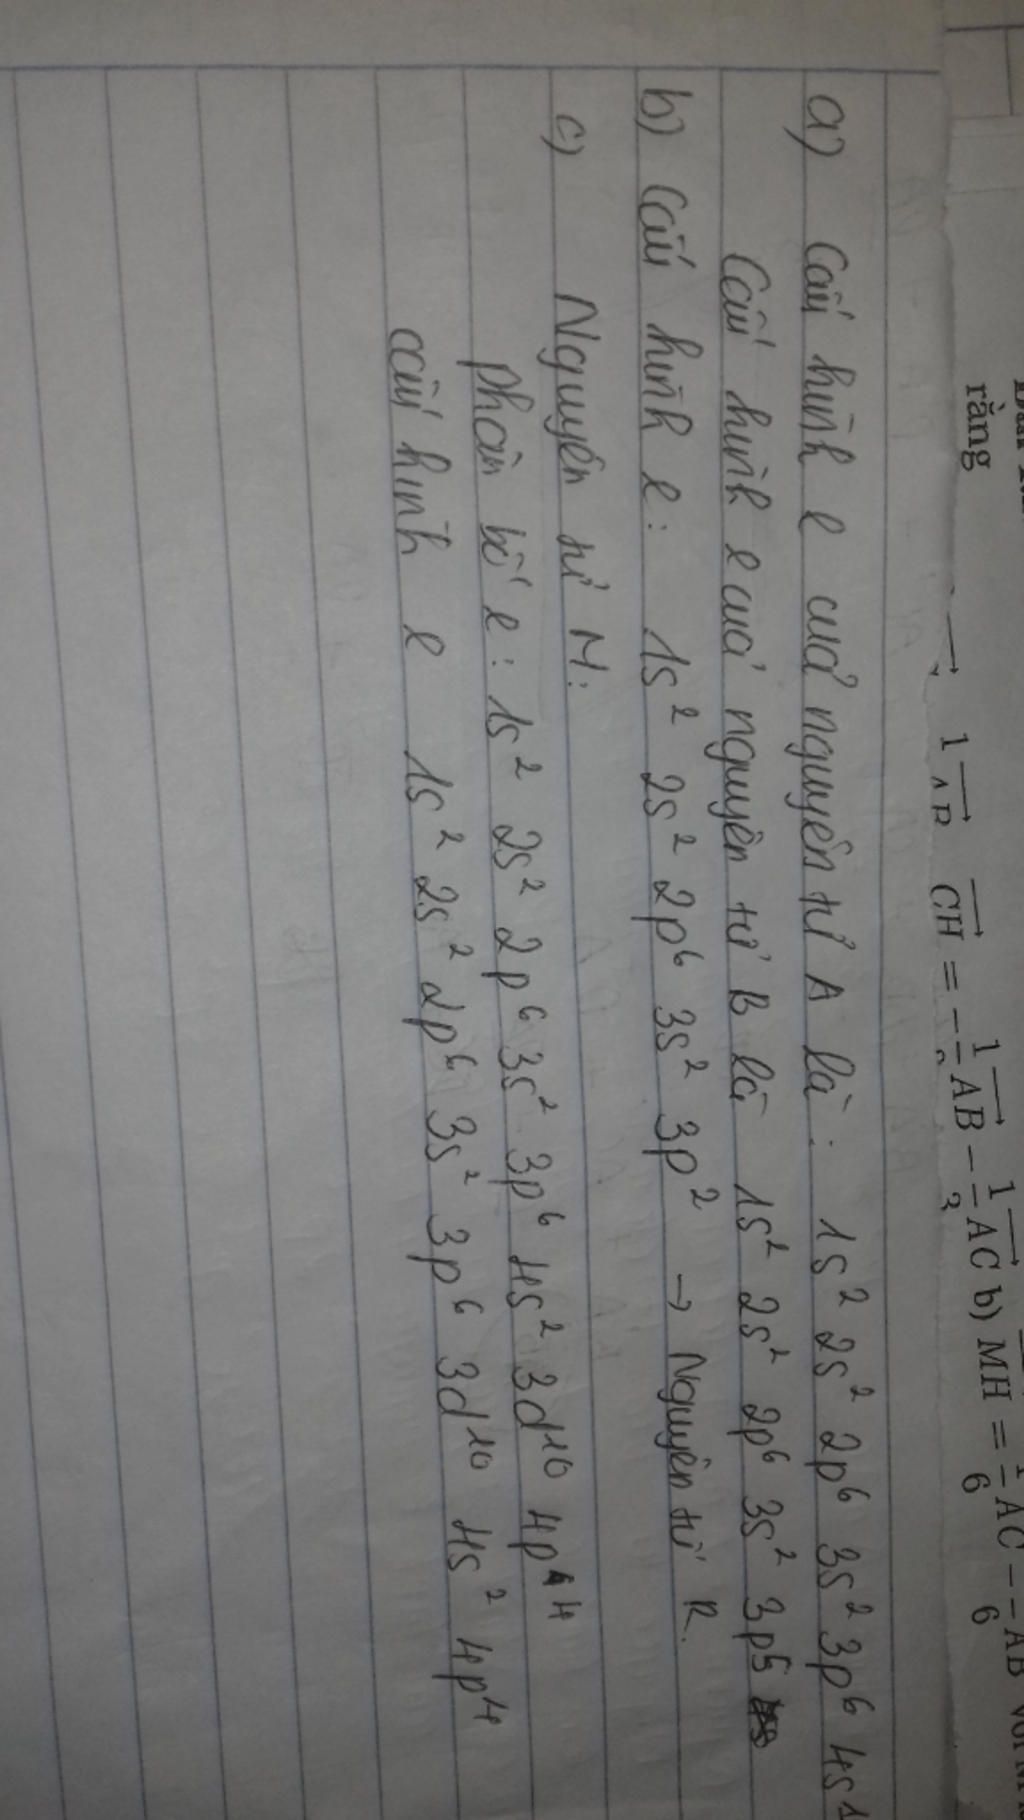 rằng
CH = - AB - 1/3 AC b) MH = AC - AB với
a) Cấu hình e của nguyên tử A là: 1s² 2s² 2p⁶ 3s² 3p⁶ 4s¹
Cấu hình e của nguyên tử B là 1s² 2s² 2p⁶ 3s² 3p⁵
b) Cấu hình e: 1s² 2s² 2p⁶ 3s² 3p² → Nguyên tử R.
c) Nguyên tử M:
phân bố e: 1s² 2s² 2p⁶ 3s² 3p⁶ 4s² 3d¹⁰ 4p⁴
cấu hình e 1s² 2s² 2p⁶ 3s² 3p⁶ 3d¹⁰ 4s² 4p⁴